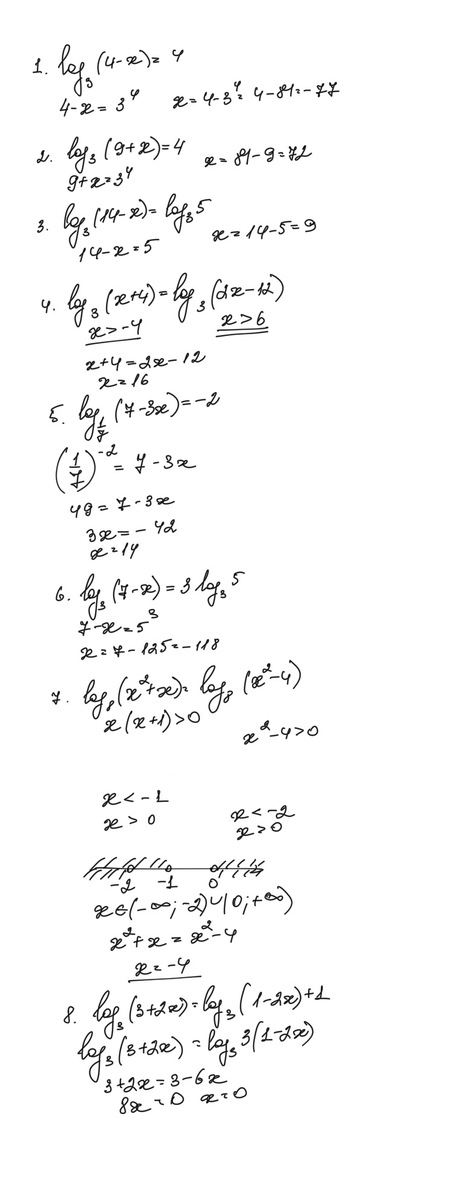 1. log₃(4-x)= 4
4-x = 3⁴ x = 4-3⁴= 4-81=-77
2. log₃(9+x)=4 x = 81-9=72
9+x=3⁴
3. log₃(14-x)= log₃5 x=14-5=9
14-x=5
4. log₃(x+4)=log₃(2x-12)
x>-4 x>6
x+4=2x-12
x=16
5. log_(1/7)(7-3x)=-2
(1/7)⁻² = 7-3x
49=7-3x
3x=-42
x=14
6. log₃(7-x)=3log₃5
7-x=5³
x=7-125=-118
7. log₈(x²+x)=log₈(x²-4)
x(x+1)>0 x²-4>0
x<-1 x<-2
x>0 x>0
-2 -1 0
x∈(-∞;-2)∪(0;+∞)
x²+x=x²-4
x=-4
8. log₃(3+2x)=log₃(1-2x)+1
log₃(3+2x)=log₃3(1-2x)
3+2x=3-6x
8x=0 x=0